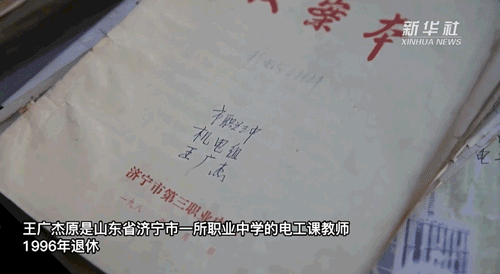 新华社
XINHUA NEWS
教案本
市职业三中
机电组
王广杰
济宁市第三职业中
一九八
王广杰原是山东省济宁市一所职业中学的电工课教师
1996年退休